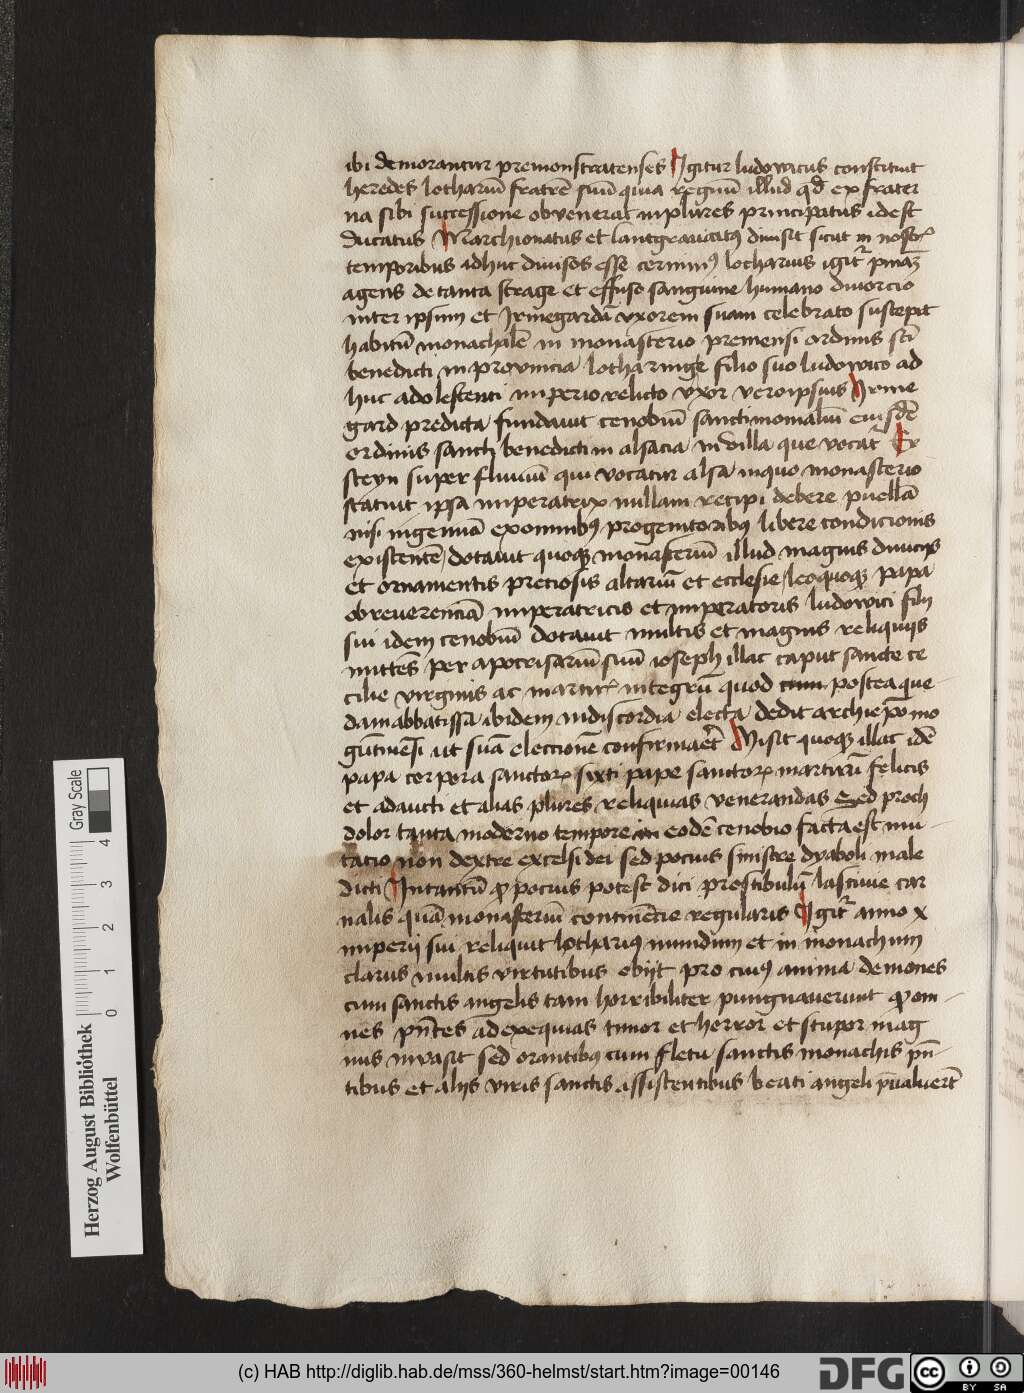 ibi demorantur premonstratenses Igitur ludowicus constituit
heredes lothariū fratrē suū quia regnū illud qd ex frater
na sibi successione obvenerat in plures principatus id est
ducatus Marchionatus et lantgraviatꝰ divisit sicut in nostꝝ
temporibus adhuc divisos esse cernimꝰ lotharius igitͬ pniāʒ
agens de tanta strage et effuso sanguine humano divorcio
inter ipsum et Irmegardā uxorem suam celebrato suscepit
habitū monachalē in monasterio premensi ordinis sc̄i
benedicti in provincia lotharinge filio suo ludowico ad
huc adolescenti imperio relicto uxor vero ipsius Irme
gard predicta fundavit cenobiū sanctimonialiū eiusdē
ordinis sancti benedicti in alsacia in villa que vocatͬ Er
steyn super fluviū qui vocatur alsa in quo monasterio
statuit ipsa imperatrix nullam recipi debere puellā
nisi ingenuā ex omnibꝰ progenitoribꝰ libere condicionis
existentē dotavit quoqꝫ monasteriū illud magnis diviciis
et ornamentis preciosis altariū et ecclesie leo quoqꝫ papa
ob reverenciā imperatricis et imperatoris ludowici filii
sui idem cenobiū dotavit multis et magnis reliquiis
mittēs per apocrisariū suū ioseph illac caput sancte ce
cilie virginis ac martirꝭ integrū quod cum postea que
dam abbatissa ibidem in discordia electa dedit archiep̄o mo
gūtinēsi ut suā eleccionē confirmaret Misit quoqꝫ illac idē
papa corpora sanctoꝝ sixti pape sanctoꝝ martirū felicis
et adaucti et alias plures reliquias venerandas Sed proch
dolor tanta moderno tempore in eodē cenobio facta est mu
tacio non dextre excelsi dei sed pocius sinistre dyaboli male
dicti Intantū ꝙ pocius potest dici prostibulū lascivie car
nalis quā monasteriū continēcie regularis Igitͬ anno x
imperii sui reliquit lothariꝰ mundum et in monachum
clarus multis virtutibus obiit pro cuiꝰ anima demones
cum sanctis angelis tam horribiliter pungnaverunt ꝙ om
nes pn̄tes ad exequias timor et horror et stupor mag
nus invasit sed orantibꝰ cum fletu sanctis monachis pn̄
tibus et aliis viris sanctis assistentibus beati angeli p̄valuerūt
Herzog August Bibliothek
Wolfenbüttel
0 1 2 3 4
Gray Scale
(c) HAB http://diglib.hab.de/mss/360-helmst/start.htm?image=00146
DFG
cc BY SA